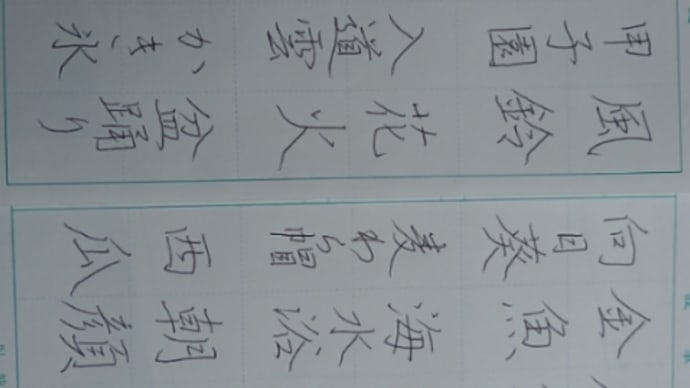 金魚 海水浴 朝顔
向日葵 麦わら帽 西瓜
風鈴 花火 盆踊り
甲子園 入道雲 かき氷